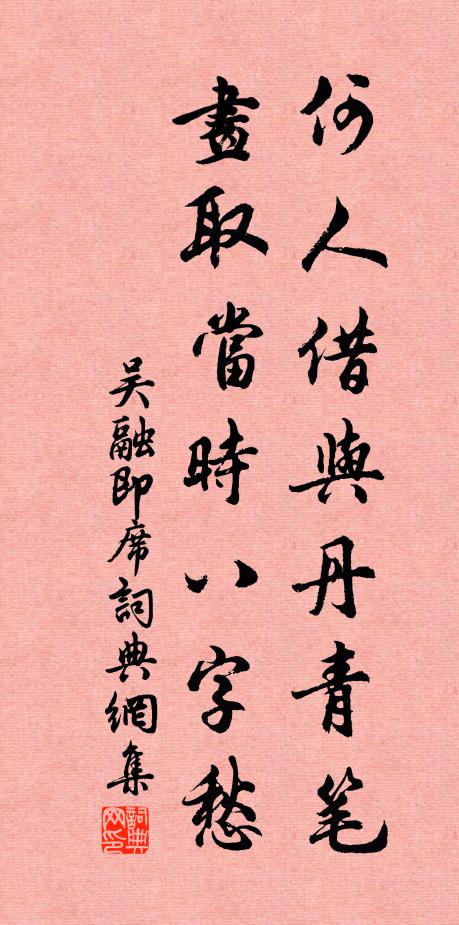 何人借與丹青笔
畫取當時八字愁
吴融即席詞典網集
詞典网印